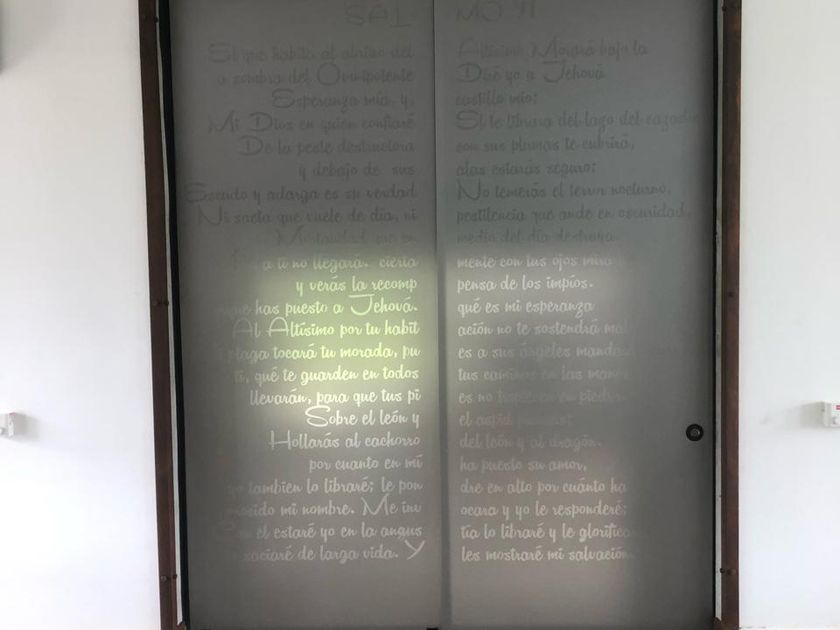 SAL MO 91
El que habita al abrigo del Altísimo Morará bajo la
a sombra del Omnipotente Diré yo a Jehová
Esperanza mía, y, castillo mío;
Mi Dios en quien confiaré El te librara del lago del cazador
De la peste destructora con sus plumas te cubrirá,
y debajo de sus alas estarás seguro;
Escudo y adarga es su verdad No temerás el terror nocturno,
Ni saeta que vuele de día, ni pestilencia que ande en oscuridad,
Mortandad que en medio del día destruya.
a ti no llegará. cierta mente con tus ojos mira
y verás la recomp pensa de los impíos.
has puesto a Jehová. qué es mi esperanza
Al Altísimo por tu habit ación no te sostendrá mal
plaga tocará tu morada, pu es a sus ángeles mandará
ti, qué te guarden en todos tus caminos en las manos
llevarán, para que tus pi es no tropiecen en piedra
Sobre el león y el aspid
Hollarás al cachorro del león y al dragón.
por cuanto en mí ha puesto su amor,
yo tambien lo libraré; le pon dre en alto por cuánto ha
mi nombre. Me inv ocara y yo le responderé;
él estaré yo en la angus tia lo libraré y le glorifica
saciaré de larga vida. Y les mostraré mi salvación